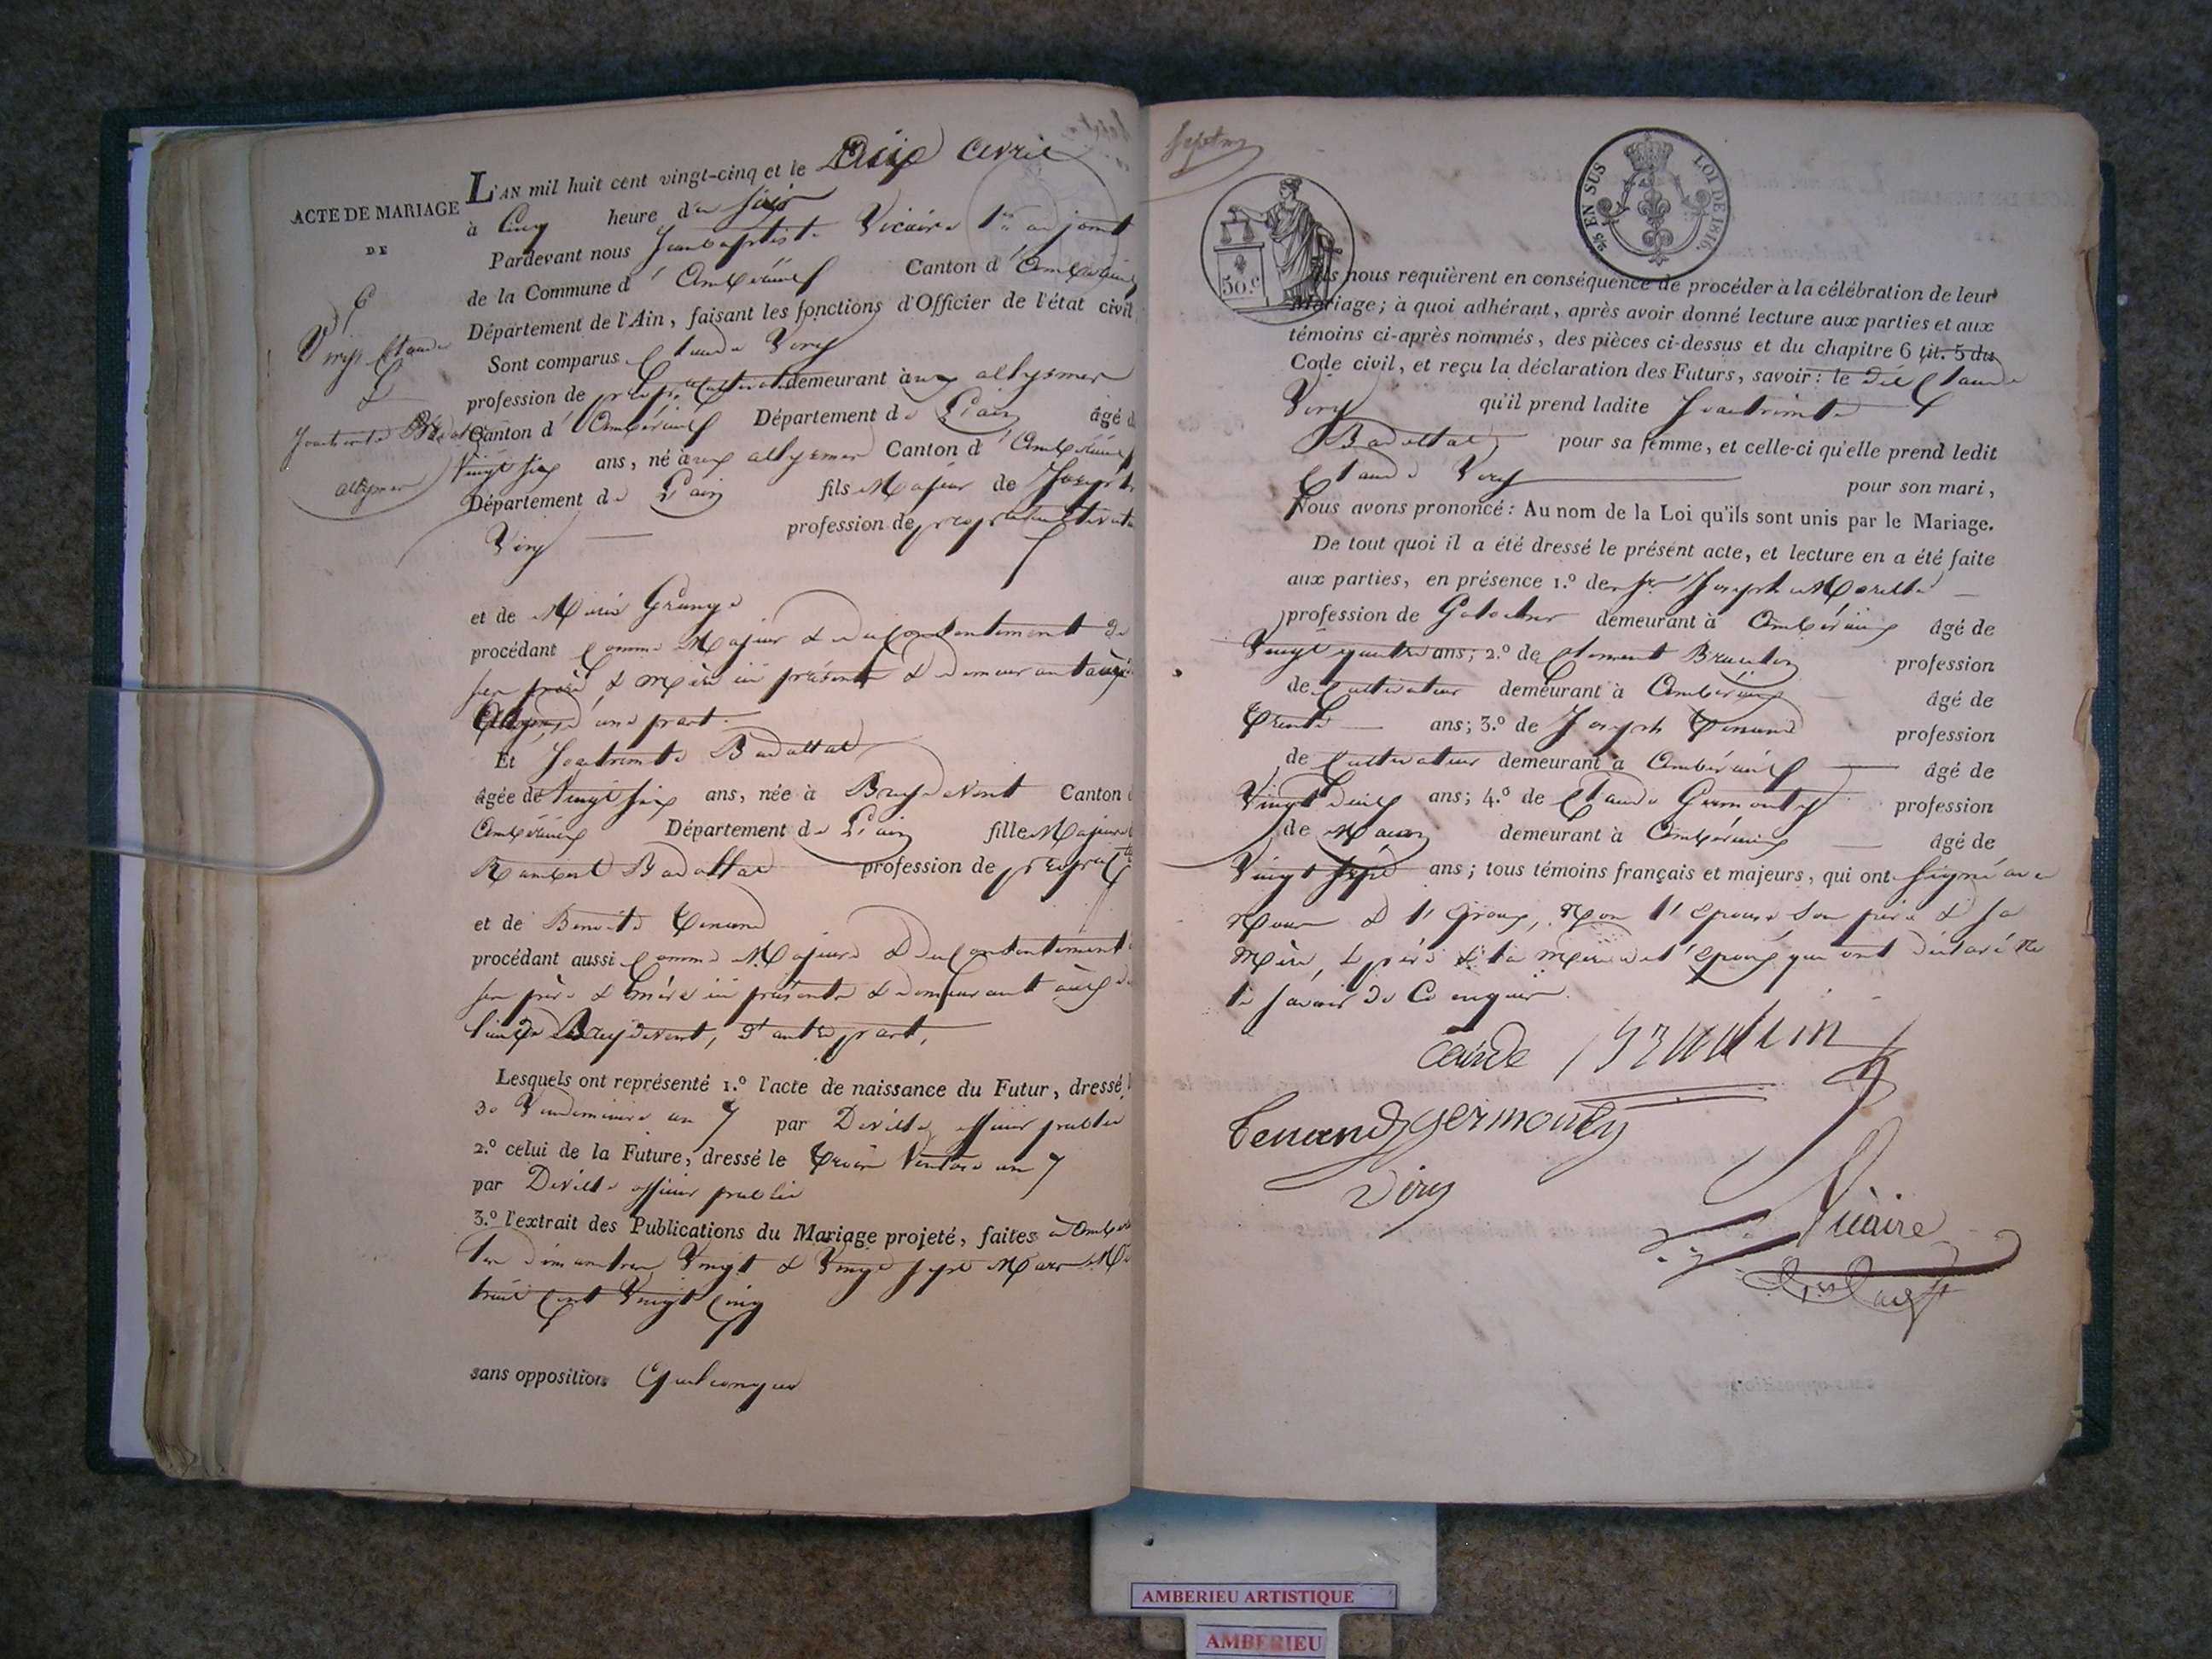 ACTE DE MARIAGE
DE
6
Viry Claude
&
Jacqueminte Badollat
allymes
L'AN mil huit cent vingt-cinq et le Dix avril
à Cinq heure du soir
Pardevant nous Jeanbaptiste Vicaire 1er adjoint
de la Commune d' Ambérieux Canton d' Ambérieux
Département de l'Ain, faisant les fonctions d'Officier de l'état civil
Sont comparus Claude Viry
profession de prop. cultivateur demeurant aux allymes
Canton d' Ambérieux Département de L'ain âgé de
Vingt six ans, né aux allymes Canton d' Ambérieux
Département de L'ain fils Majeur de Joseph
Viry profession de propriétaire cultivateur
et de Marie Grange
procédant Comme Majeur & du Consentement de
ses père & mère ici présents & demeurant aux
allymes, d'une part.
Et Badollat
âgée de Vingt six ans, née à Breydevent Canton d
Ambérieux Département de L'ain fille Majeure de
Rambert Badollat profession de
et de Benoite Tenand
procédant aussi Comme Majeure & du Consentement de
ses père & mère ici présents & demeurant
lieu de Breydevent, d'autre part,
Lesquels ont représenté 1.º l'acte de naissance du Futur, dressé
30 Vendemiaire an 7 par Deville officier public
2.º celui de la Future, dressé le Ventose an 7
par Deville officier public
3.º l'extrait des Publications du Mariage projeté, faites à Ambérieux
les dimanches Vingt & Vingt sept Mars Mil
huit Cent Vingt Cinq
sans opposition Quelconque
Septem
50.c
2/5 EN SUS LOI DE 1816.
Ils nous requièrent en conséquence de procéder à la célébration de leur
Mariage; à quoi adhérant, après avoir donné lecture aux parties et aux
témoins ci-après nommés, des pièces ci-dessus et du chapitre 6 tit. 5 du
Code civil, et reçu la déclaration des Futurs, savoir: le dit Claude
Viry qu'il prend ladite
Badollat pour sa femme, et celle-ci qu'elle prend ledit
Claude Viry pour son mari,
Nous avons prononcé: Au nom de la Loi qu'ils sont unis par le Mariage.
De tout quoi il a été dressé le présent acte, et lecture en a été faite
aux parties, en présence 1.º de Sr. Joseph
profession de demeurant à Ambérieux âgé de
Vingt quatre ans; 2.º de Clement profession
de Cultivateur demeurant à Ambérieux âgé de
Trente ans; 3.º de Joseph Tenand profession
de Cultivateur demeurant à Ambérieux âgé de
Vingt ans; 4.º de Claude Germonty profession
de Maçon demeurant à Ambérieux âgé de
Vingt sept ans; tous témoins français et majeurs, qui ont signé avec
Nous & l'époux, Non l'épouse son père & sa
Mère, le père & la mère de l'époux qui ont déclaré ne
le savoir de Ce enquis.
Tenand germonty
Viry
Vicaire